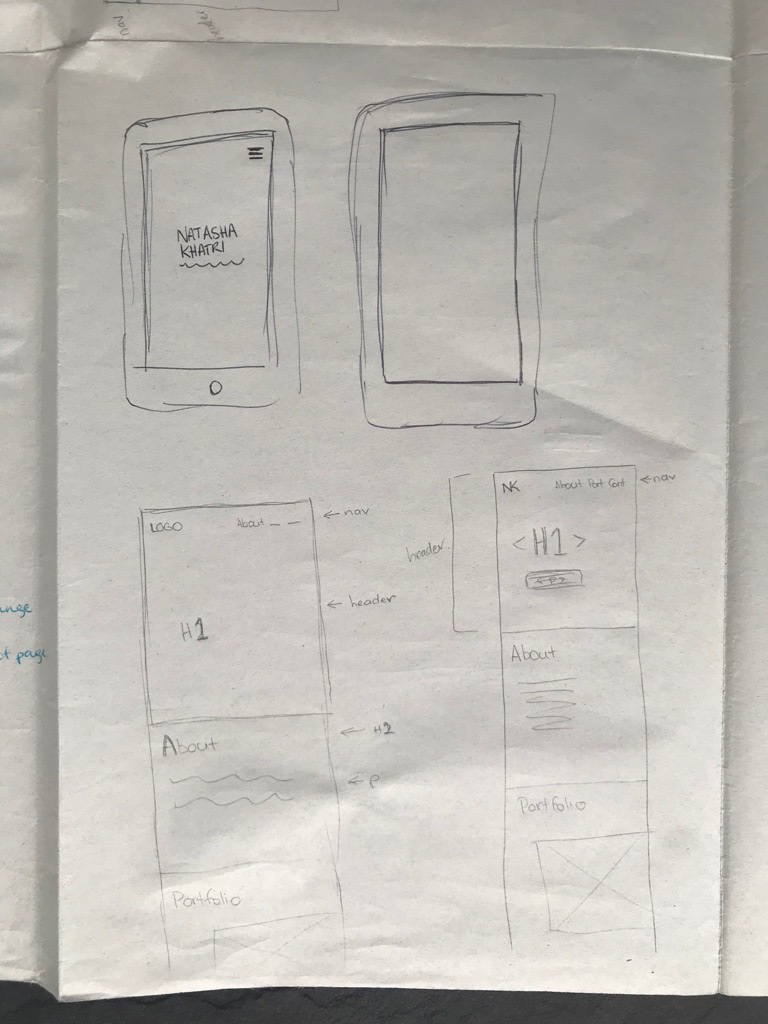 nav
NATASHA
KHATRI
LOGO
About
← nav
← header
H1
About
← H2
← p
Portfolio
header
NK
About Port Cont
← nav
<H1>
About
Portfolio
ange
t page